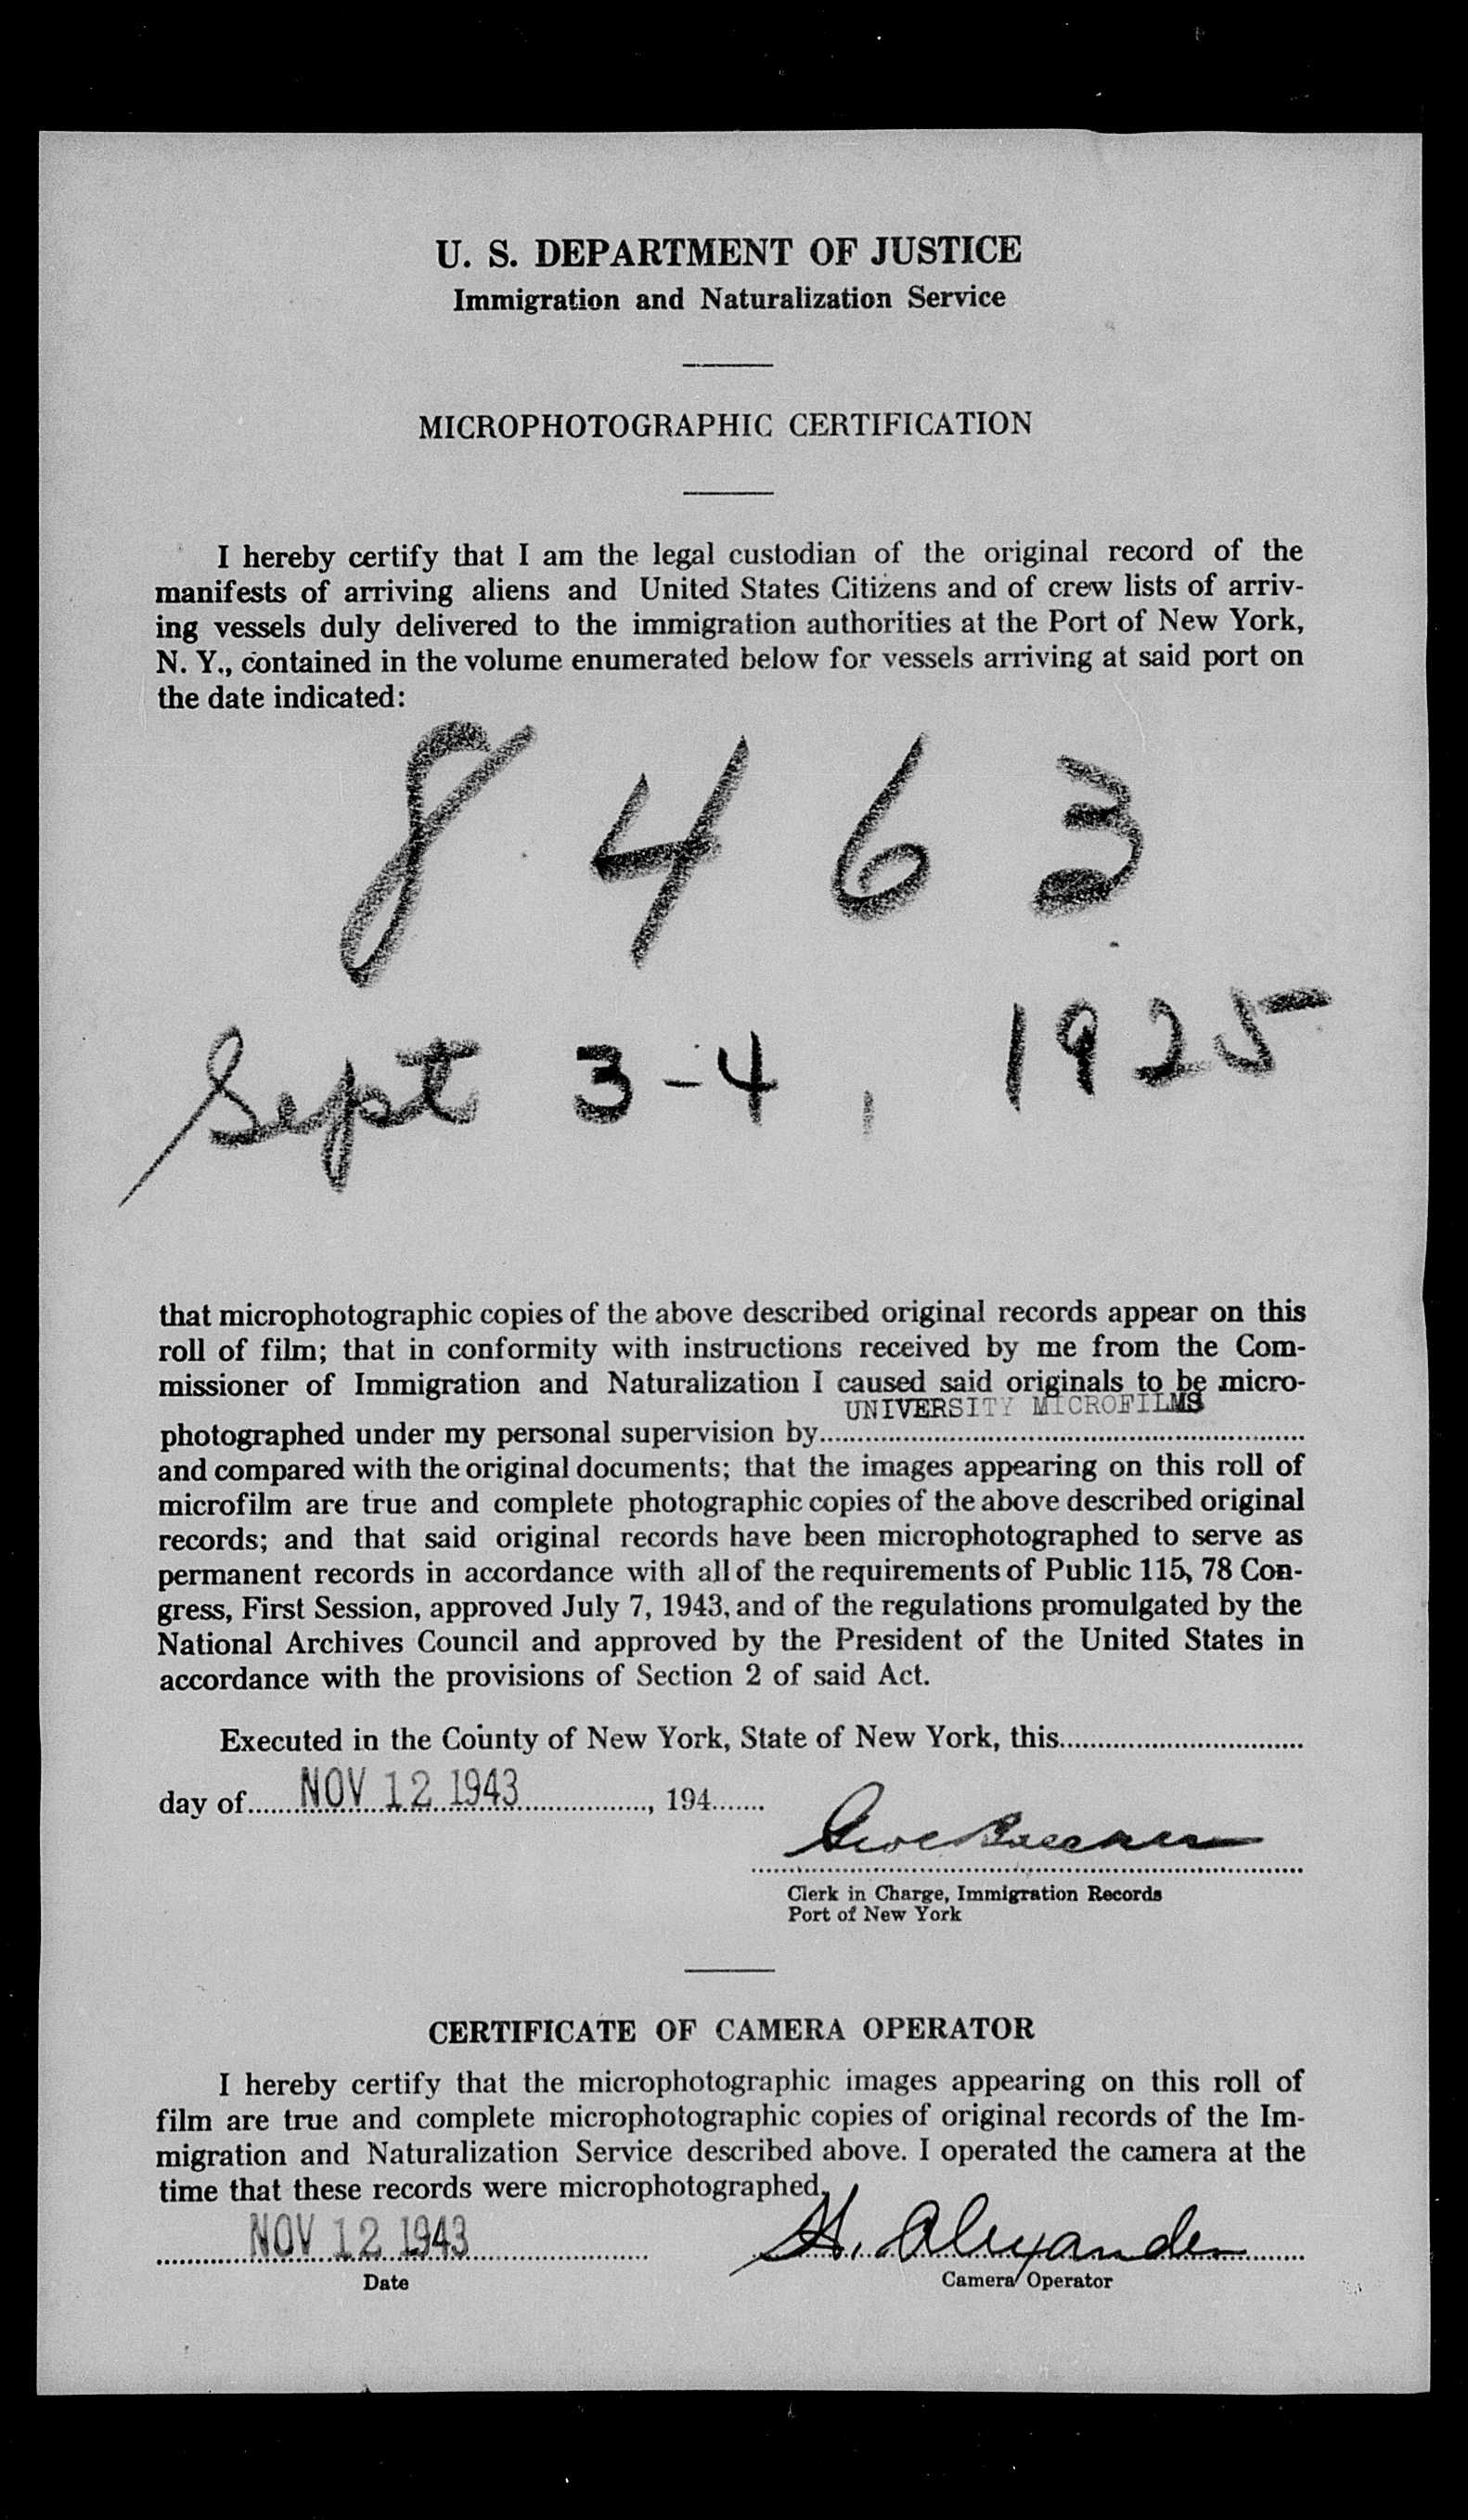 U. S. DEPARTMENT OF JUSTICE
Immigration and Naturalization Service
MICROPHOTOGRAPHIC CERTIFICATION
I hereby certify that I am the legal custodian of the original record of the
manifests of arriving aliens and United States Citizens and of crew lists of arriv-
ing vessels duly delivered to the immigration authorities at the Port of New York,
N. Y., contained in the volume enumerated below for vessels arriving at said port on
the date indicated:
8463
Sept 3-4, 1925
that microphotographic copies of the above described original records appear on this
roll of film; that in conformity with instructions received by me from the Com-
missioner of Immigration and Naturalization I caused said originals to be micro-
UNIVERSITY MICROFILMS
photographed under my personal supervision by
and compared with the original documents; that the images appearing on this roll of
microfilm are true and complete photographic copies of the above described original
records; and that said original records have been microphotographed to serve as
permanent records in accordance with all of the requirements of Public 115, 78 Con-
gress, First Session, approved July 7, 1943, and of the regulations promulgated by the
National Archives Council and approved by the President of the United States in
accordance with the provisions of Section 2 of said Act.
Executed in the County of New York, State of New York, this
day of NOV 12 1943, 194
Clerk in Charge, Immigration Records
Port of New York
CERTIFICATE OF CAMERA OPERATOR
I hereby certify that the microphotographic images appearing on this roll of
film are true and complete microphotographic copies of original records of the Im-
migration and Naturalization Service described above. I operated the camera at the
time that these records were microphotographed.
NOV 12 1943 H. Alexander
Date Camera Operator